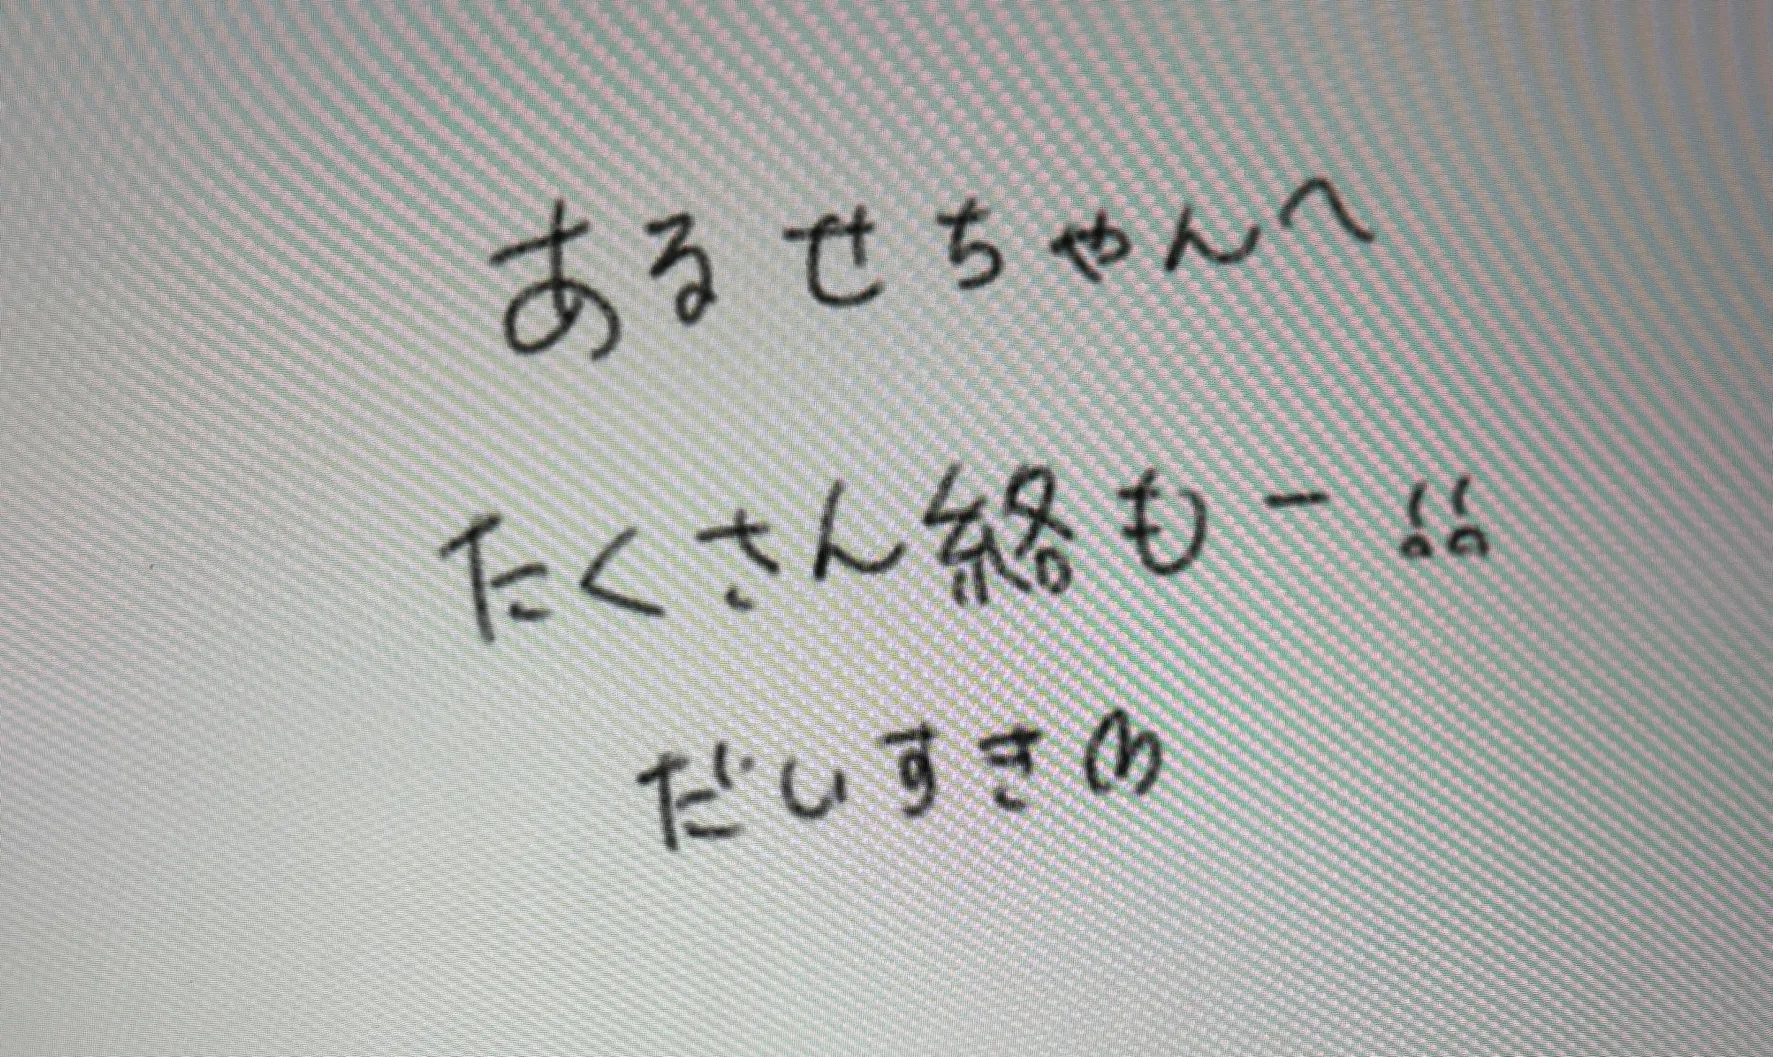 あるせちゃんへ
たくさん絡もー!!
だいすき